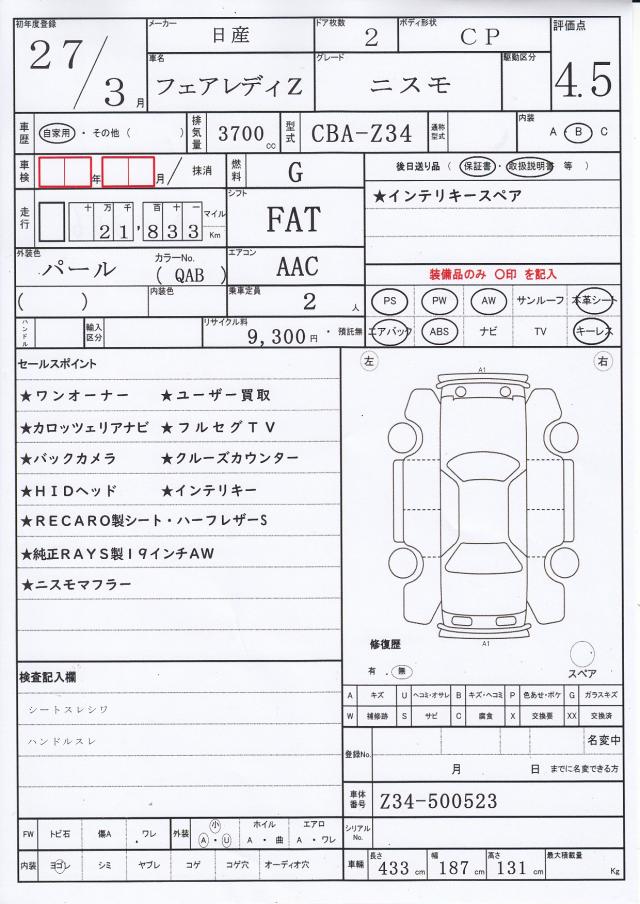 初年度登録 27/3月 メーカー 日産 ドア枚数 2 ボディ形状 CP 評価点 4.5
車名 フェアレディZ グレード ニスモ 駆動区分
車歴 自家用・その他( ) 排気量 3700cc 型式 CBA-Z34 通称型式 内装 A・B C
車検 年 月/ 抹消 燃料 G 後日送り品 (保証書・取扱説明書 等 )
走行 十万千百十一 21,833 マイル Km シフト FAT ★インテリキースペア
外装色 パール カラーNo. ( QAB ) エアコン AAC 装備品のみ 〇印 を記入
( ) 内装色 乗車定員 2人 PS PW AW サンルーフ 本革シート
ハンドル 輸入区分 リサイクル料 9,300円 ・預託無 エアバック ABS ナビ TV キーレス
セールスポイント 左 右
A1
★ワンオーナー ★ユーザー買取
★カロッツェリアナビ ★フルセグTV
★バックカメラ ★クルーズカウンター
★HIDヘッド ★インテリキー
★RECARO製シート・ハーフレザーS
★純正RAYS製19インチAW
★ニスモマフラー
A1
修復歴
有.無 スペア
検査記入欄
A キズ U ヘコミ・オサレ B キズ・ヘコミ P 色あせ・ボケ G ガラスキズ
シートスレシワ W 補修跡 S サビ C 腐食 X 交換要 XX 交換済
ハンドルスレ 登録No. 名変中
月 日 までに名変できる方
車体番号 Z34-500523
FW トビ石 傷A ワレ 外装 小 A・U ホイル A・曲 エアロ A・ワレ シリアルNo.
内装 ヨゴレ シミ ヤブレ コゲ コゲ穴 オーディオ穴 車輛 長さ 433cm 幅 187cm 高さ 131cm 最大積載量 Kg